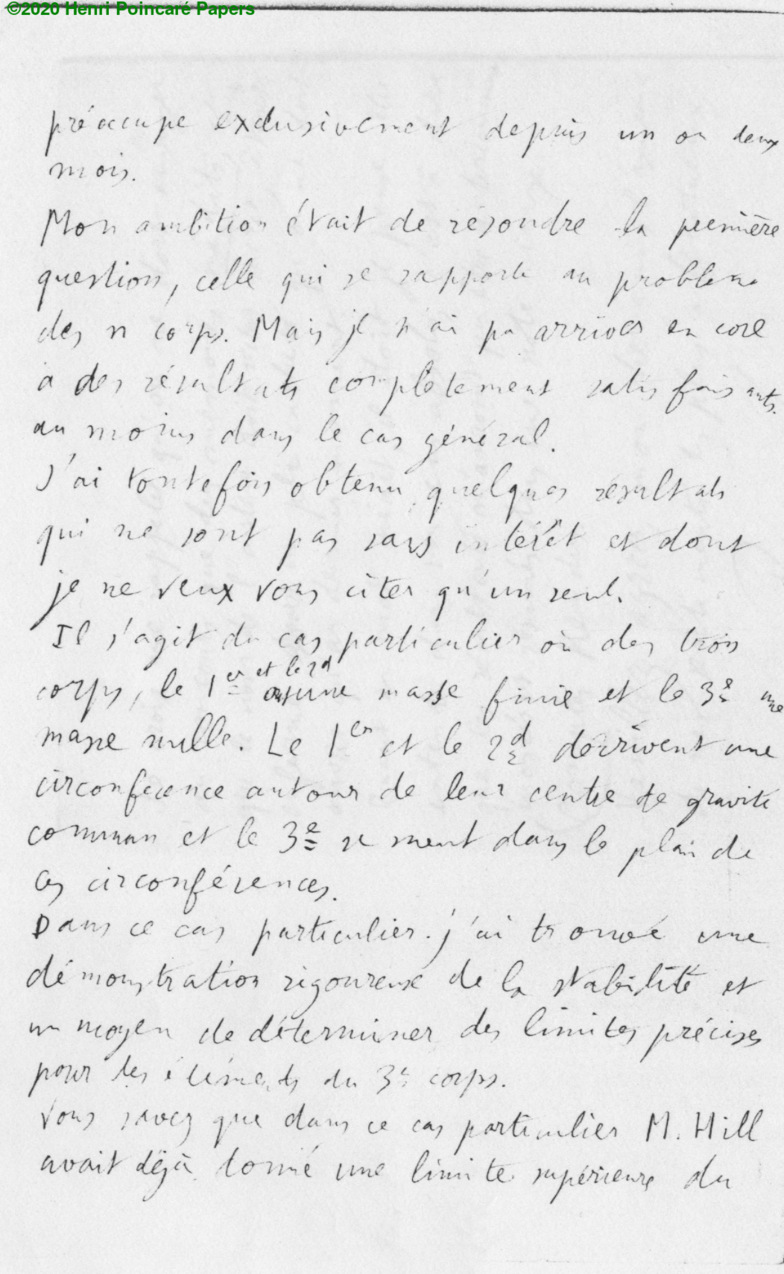 ©2020 Henri Poincaré Papers
préoccupe exclusivement depuis un ou deux
mois.
Mon ambition était de résoudre la première
question, celle qui se rapporte au problème
des n corps. Mais je n'ai pu arriver encore
à des résultats complètement satisfaisants.
au moins dans le cas général.
J'ai toutefois obtenu quelques résultats
qui ne sont pas sans intérêt et dont
je ne veux vous citer qu'un seul.
Il s'agit du cas particulier où des trois
corps, le 1er et le 2d ont une masse finie et le 3e une
masse nulle. Le 1er et le 2d décrivent une
circonférence autour de leur centre de gravité
commun et le 3e se meut dans le plan de
ces circonférences.
Dans ce cas particulier j'ai trouvé une
démonstration rigoureuse de la stabilité et
un moyen de déterminer des limites précises
pour les éléments du 3e corps.
Vous savez que dans ce cas particulier M. Hill
avait déjà donné une limite supérieure du